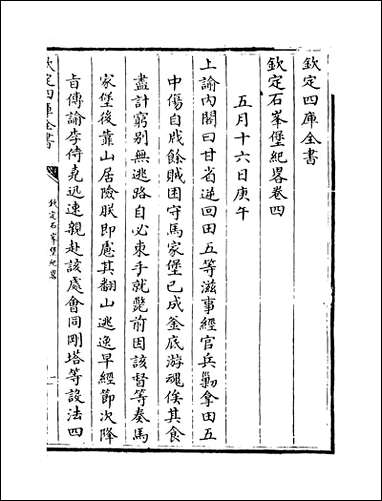 欽定四庫全書
欽定石峯堡紀畧卷四
五月十六日庚午
上諭內閣曰甘省逆回田五等滋事經官兵勦拿田五
中傷自戕餘賊困守馬家堡已成釜底游魂俟其食
盡計窮別無逃路自必束手就斃前因該督等奏馬
家堡後靠山居險朕即慮其翻山逃逸早經節次降
旨傳諭李侍堯迅速親赴該處會同剛塔等設法四
欽定四庫全書
欽定石峯堡紀畧